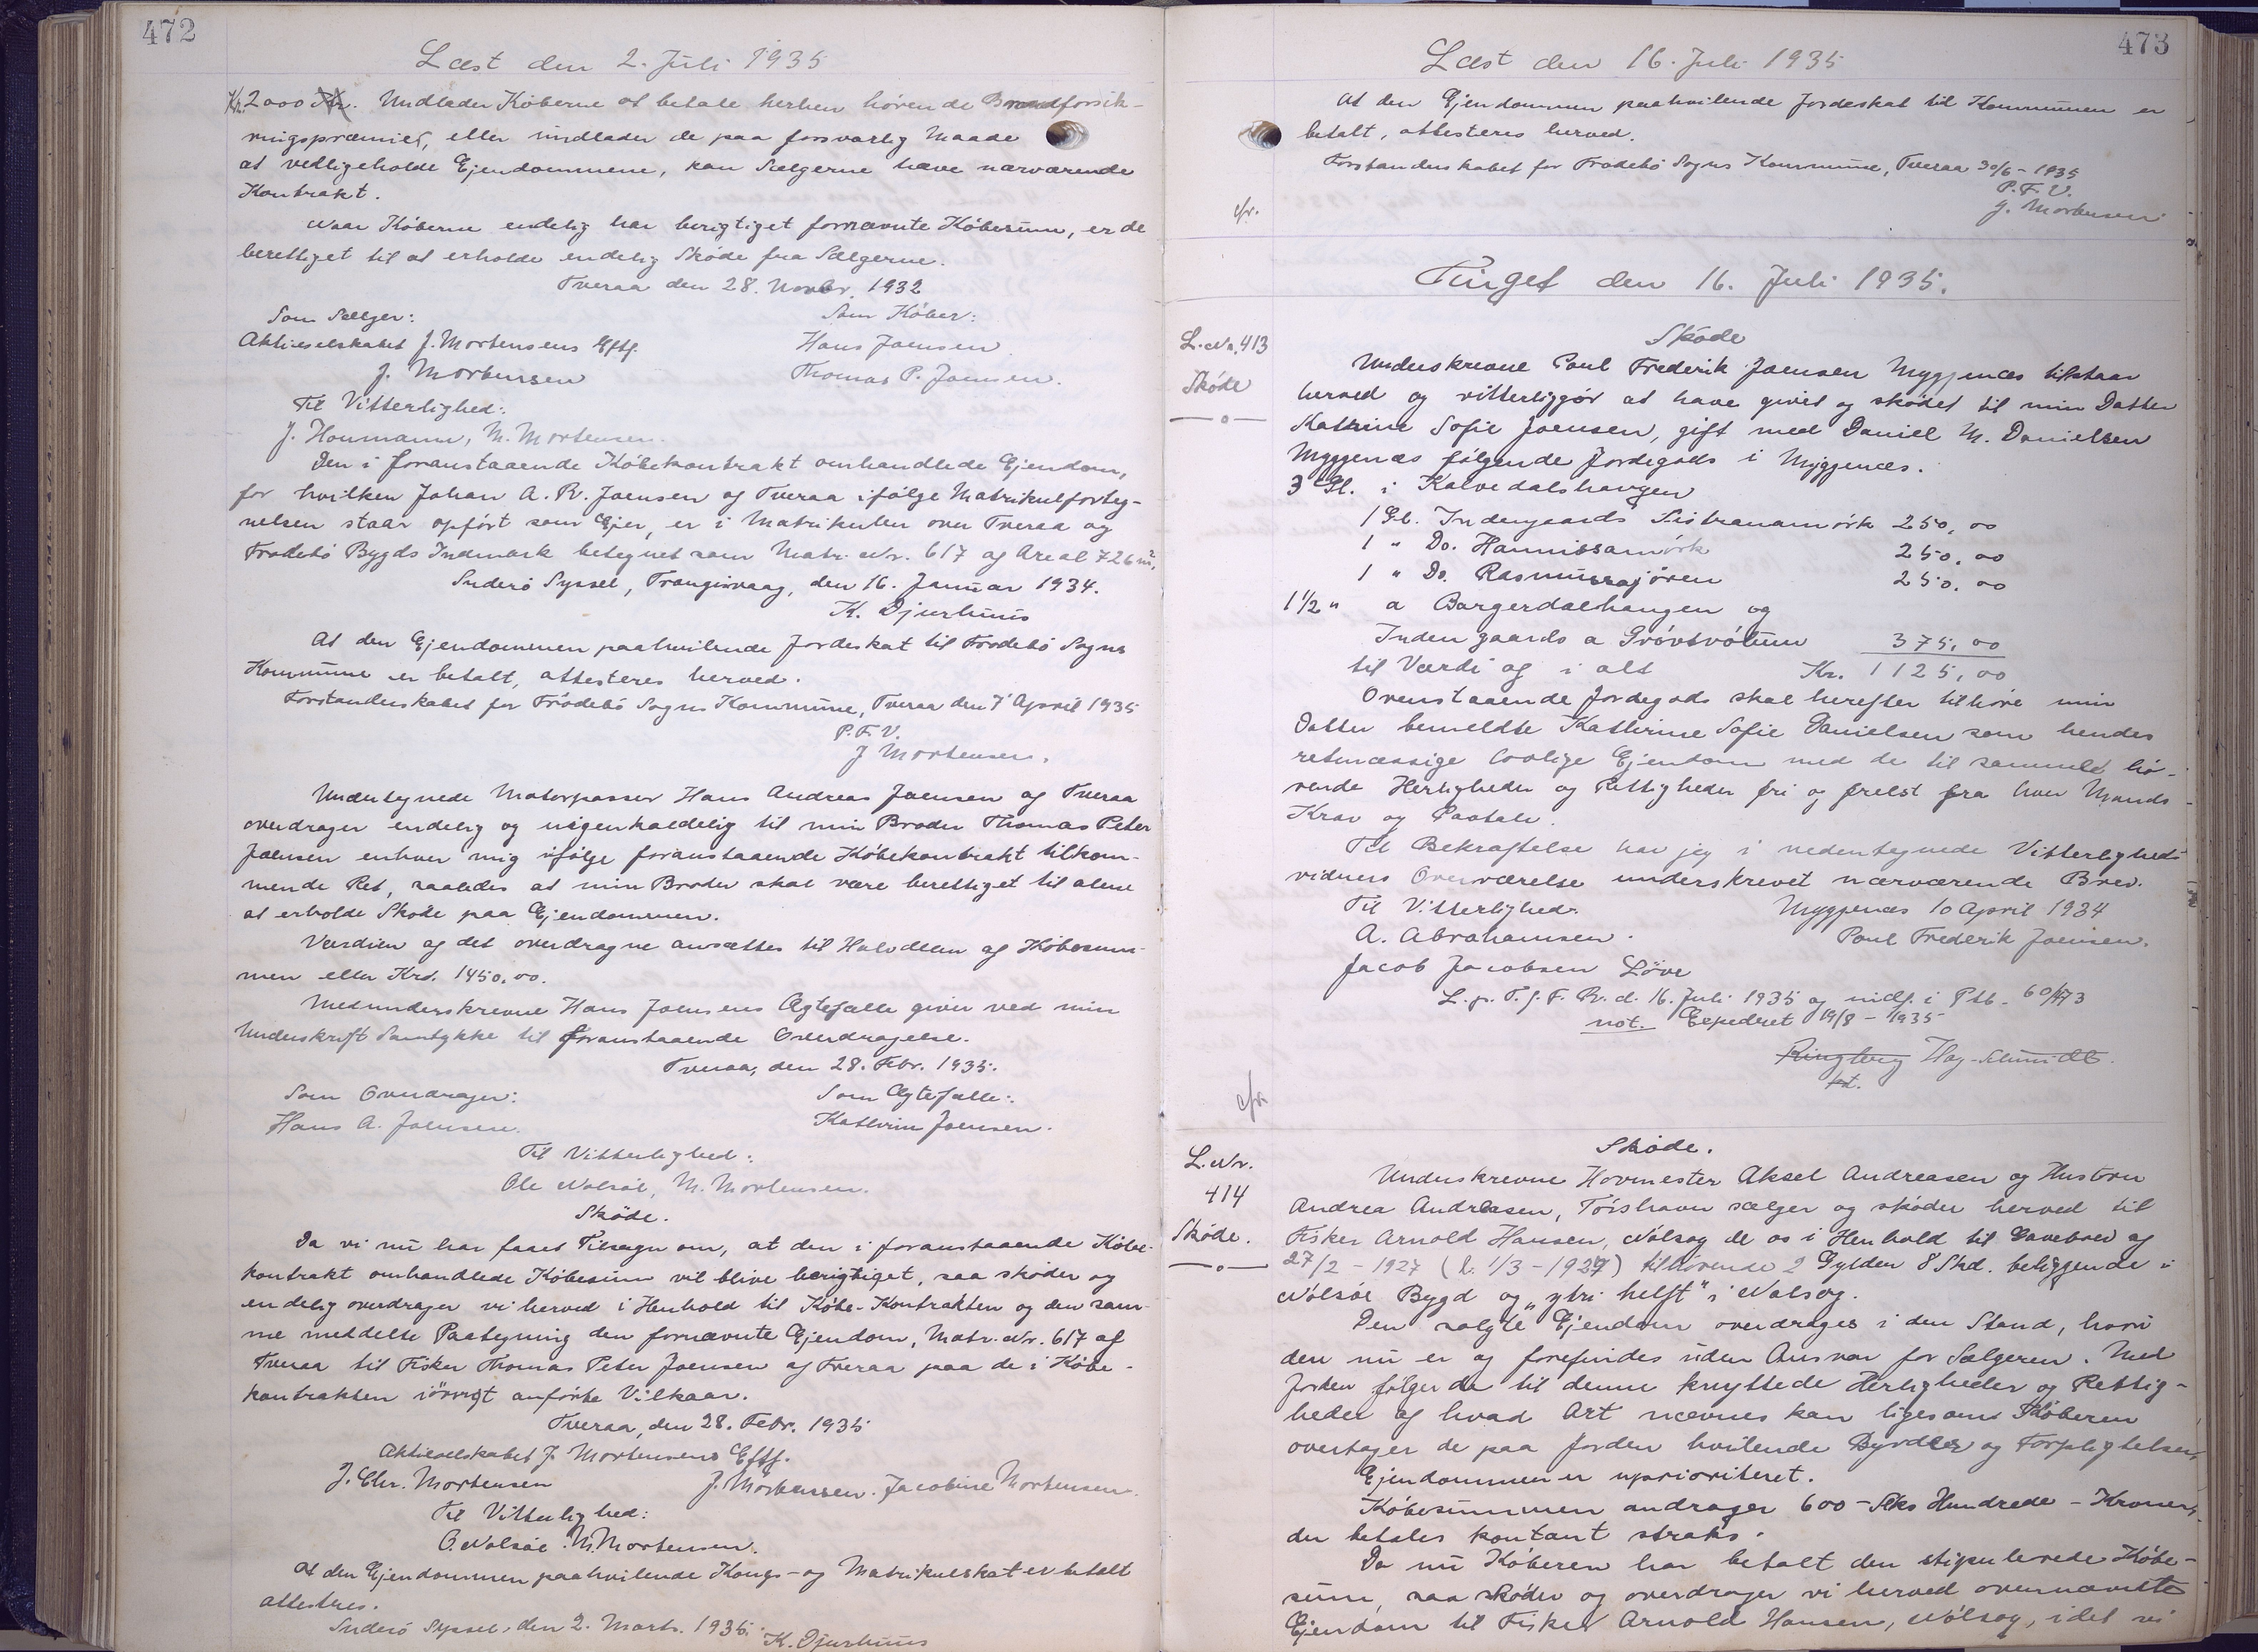 472
Læst den 2. Juli 1935
Kr. 2000 Kr. Undlader Köberne at betale herhen hörende Brandforsik-
ringspræmier, eller undlader de paa forsvarlig Maade
at vedligeholde Ejendommene, kan Sælgerne hæve nærværende
Kontrakt.
Naar Köberne endelig har berigtiget fornævnte Köbesum, er de
berettiget til at erholde endelig Sköde fra Sælgerne.
Tveraa den 28. Novbr. 1932
Som Sælger: Som Köber:
Aktieselskabet J. Mortensens Eftf. Hans Joensen
J. Mortensen Thomas P. Joensen.
Til Vitterlighed:
J. Houmann, M. Mortensen.
Den i foranstaaende Köbekontrakt omhandlede Ejendom,
for hvilken Johan A. R. Joensen af Tveraa ifölge Matrikulforteg-
nelsen staar opfört som Ejer, er i Matrikulen over Tveraa og
Frodebö Bygds Indmark betegnet som Matr. Nr. 617 af Areal 726 m².
Suderö Syssel, Trangisvaag, den 16. Januar 1934.
K. Djurhuus
At den Ejendommen paahvilende Jordeskat til Frodebö Sogns
Kommune er betalt, attesteres herved.
Forstanderskabet for Frödebö Sogns Kommune, Tveraa den 7 April 1935
P.F.V.
J Mortensen.
Undertegnede Motorpasser Hans Andreas Joensen af Tveraa
overdrager endelig og uigenkaldelig til min Broder Thomas Peter
Joensen enhver mig ifölge foranstaaende Köbekontrakt tilkom-
mende Ret, saaledes at min Broder skal være berettiget til alene
at erholde Sköde paa Ejendommen.
Værdien af det overdragne ansættes til Halvdelen af Köbesum-
men eller Krd. 1450,00.
Medunderskrevne Hans Joensens Ægtefælle giver ved min
Underskrift Samtykke til foranstaaende Overdragelse.
Tveraa, den 28. Febr. 1935.
Som Overdrager: Som Ægtefælle:
Hans A. Joensen. Kathrine Joensen.
Til Vitterlighed:
Ole Nolsøe, M. Mortensen.
Sköde.
Da vi nu har faaet Tilsagn om, at den i foranstaaende Köbe-
kontrakt omhandlede Köbesum vil blive berigtiget, saa sköder og
endelig overdrager vi herved i Henhold til Köbe-Kontrakten og den sam-
me meddelte Paategning den fornævnte Ejendom, Matr. Nr. 617 af
Tveraa til Fisker Thomas Peter Joensen af Tveraa paa de i Köbe-
kontrakten iövrigt anförte Vilkaar.
Tveraa, den 28. Febr. 1935
Aktieselskabet J. Mortensens Eftf.
J. Chr. Mortensen J. Mortensen. Jacobine Mortensen.
Til Vitterlighed:
O. Nolsöe. M. Mortensen.
At den Ejendommen paahvilende Kongs- og Matrikulskat er betalt
attesteres.
Suderö Syssel, den 2. Marts. 1935. K. Djurhuus
473
Læst den 16. Juli 1935
At den Ejendommen paahvilende Jordeskat til Kommunen er
betalt, attesteres herved.
Forstanderskabet for Frodebö Sogns Kommune, Tveraa 30/6 - 1935
P.F.V.
J. Mortensen
Tinget den 16. Juli 1935.
L. No. 413
Sköde
Sköde
Underskrevne Poul Frederik Joensen Myggenæs tilstaar
herved og vitterliggör at have givet og sködet til min Datter
Kathrine Sofie Joensen, gift med Daniel M. Danielsen
Myggenæs fölgende Jordegods i Myggenæs.
3 Gl. i Kalvedalshaugen
1 Gl. Indengaards Sistranamörk 250,00
1 " Do. Hannissamörk 250,00
1 " Do. Rasmussajören 250,00
1 1/2 " a Borgerdalhaugen og
Indengaards a Grövtrötum 375,00
til Værdi af i alt Kr. 1125,00
Ovenstaaende Jordegods skal herefter tilhöre min
Datter bemeldte Kathrine Sofie Danielsen som hendes
retmæssige lovlige Ejendom med de til sammelt hö-
rende Herligheder og Rettigheder fri og frelst fra hver Mands
Krav og Paatale.
Til Bekræftelse har jeg i nedentegnede Vitterligheds-
vidners Overværelse underskrevet nærværende Brev.
Til Vitterlighed: Myggenæs 10 April 1934
A. Abrahamsen. Poul Frederik Joensen.
Jacob Jacobsen Löve
L. p. T. f. F. R. d. 16. Juli 1935 og indf. i Ptb. 60/473
not. Expedret 19/8 - 1935
Ringberg Hay-Schmidt.
kst.
L. Nr.
414
Sköde.
Sköde.
Underskrevne Hovmester Aksel Andreasen og Hustru
Andrea Andreasen, Tórshavn sælger og sköder herved til
Fisker Arnold Hansen, Nólsoy de os i Henhold til Gavebrev af
27/2 - 1927 (l. 1/3 - 1927) tilhörende 2 Gylden 8 Skd. beliggende i
Nólsöe Bygd og "ytri helft" i Nolsoy.
Den solgte Ejendom overdrages i den Stand, hvori
den nu er og forefindes uden Ansvar for Sælgeren. Med
Jorden fölger de til denne knyttede Herligheder og Rettig-
heder af hvad Art nævnes kan ligesom Köberen
overtager de paa Jorden hvilende Byrder og Forpligtelser.
Ejendommen er uprioriteret.
Köbesummen andrager 600 - Seks Hundrede - Kroner,
der betales kontant straks.
Da nu Köberen har betalt den stipulerede Köbe-
sum, saa sköder og overdrager vi herved overnævnte
Ejendom til Fisker Arnold Hansen, Nólsoy, idet vi